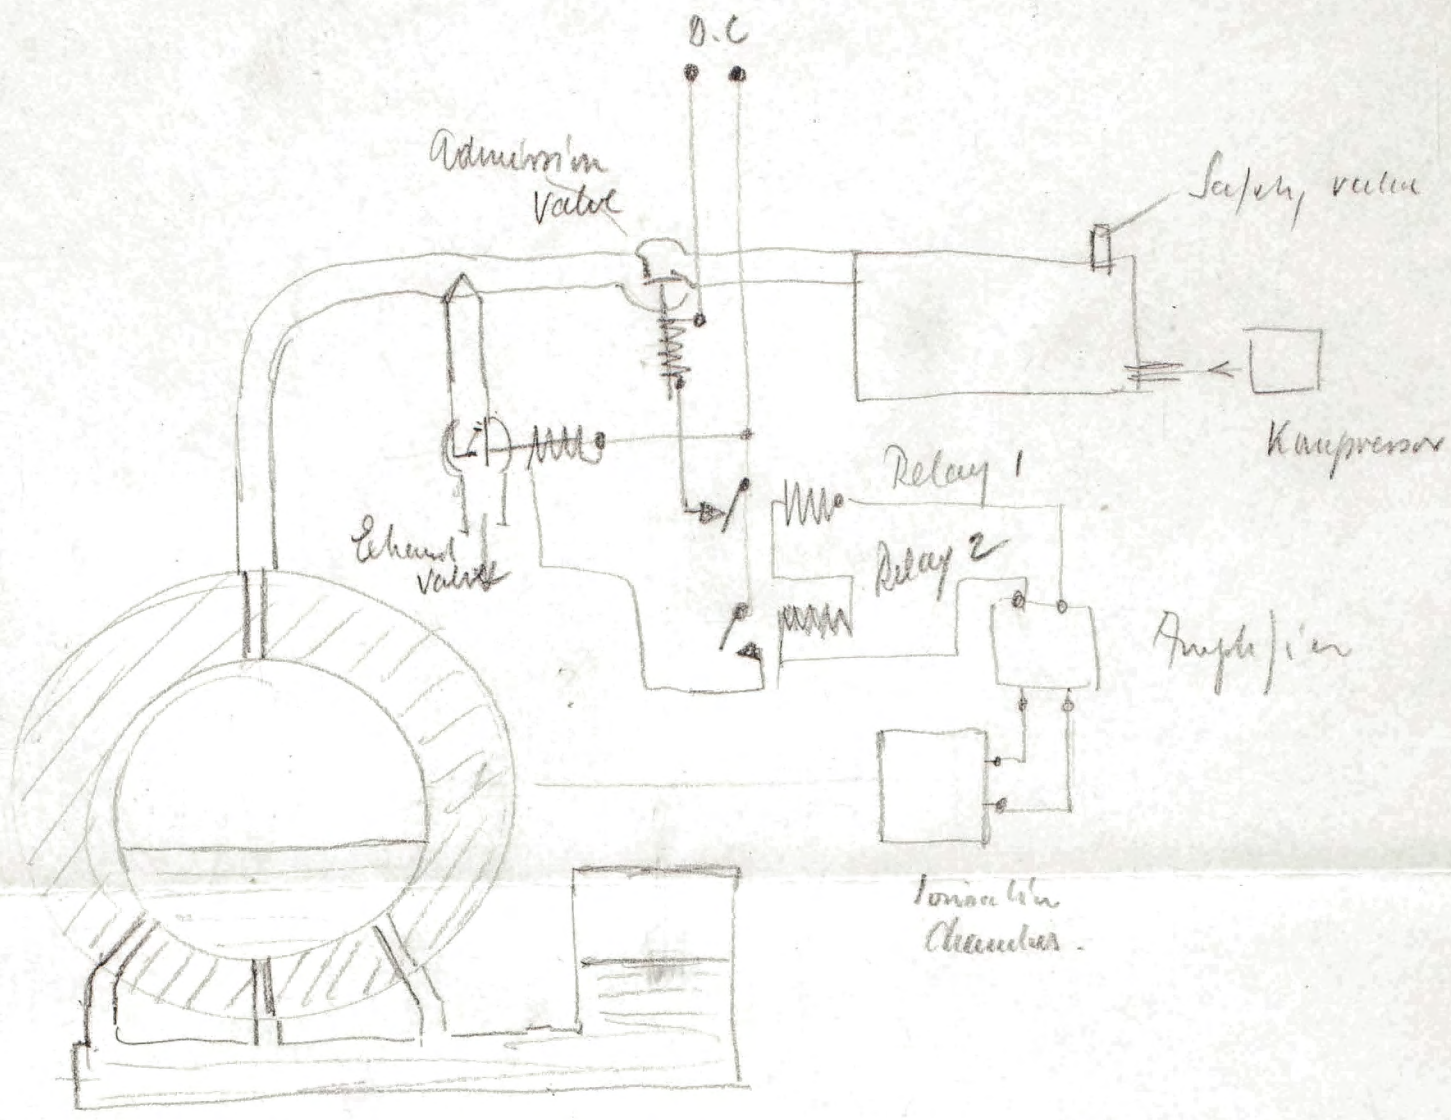 D.C
Admission
Valve
Safety valve
Kompressor
Relay 1
Exhaust
valve
Relay 2
Amplifier
Ionisation
Chamber.